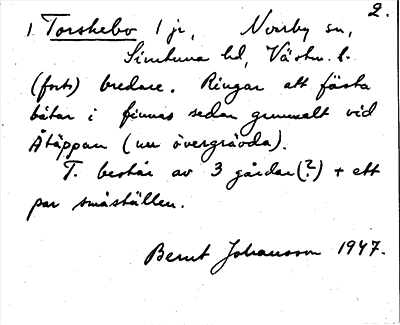 2.
1. Torskebo 1 jr, Norrby sn,
Simtuna hd, Västm. l.
(forts) bredare. Ringar att fästa
båtar i finnas sedan gammalt vid
Åtäppan (nu övergrävda).
T. består av 3 gårdar(?) + ett
par småställen.
Bernt Johansson 1947.